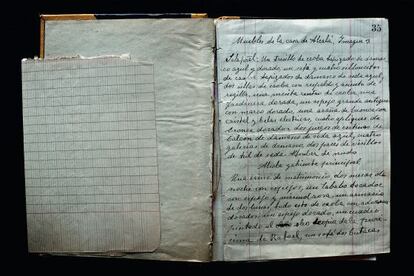 35
Muebles de la casa de Alcalá, Zaragoza
Salapoal: Un tresillo de caoba tapizado de damas
co azul y dorado, un sofá y cuatro silloncitos
de caoba tapizados de damasco de seda azul,
dos sillas de caoba con respaldo y asiento de
rejilla, una mesita centro de caoba, una
jardinera dorada, un espejo grande antiguo
con marco dorado, una araña de bronce con
cristal y velas eléctricas, cuatro apliques de
bronce dorado, dos juegos de cortinas de
balcón de damasco de seda azul, cuatro
galerías de damasco, dos pares de visillos
de tul de seda. Alfombra de nudo
gabinete principal
Una cama de matrimonio, dos mesas de
noche con espejos, un lavabo tocador
con espejo y mármol rosa, un armario
de dos lunas, todo esto de caoba con adornos
dorados, un espejo dorado, un cuadro
pintado al oleo copia de la
de Rafael, un sofá dos butacas